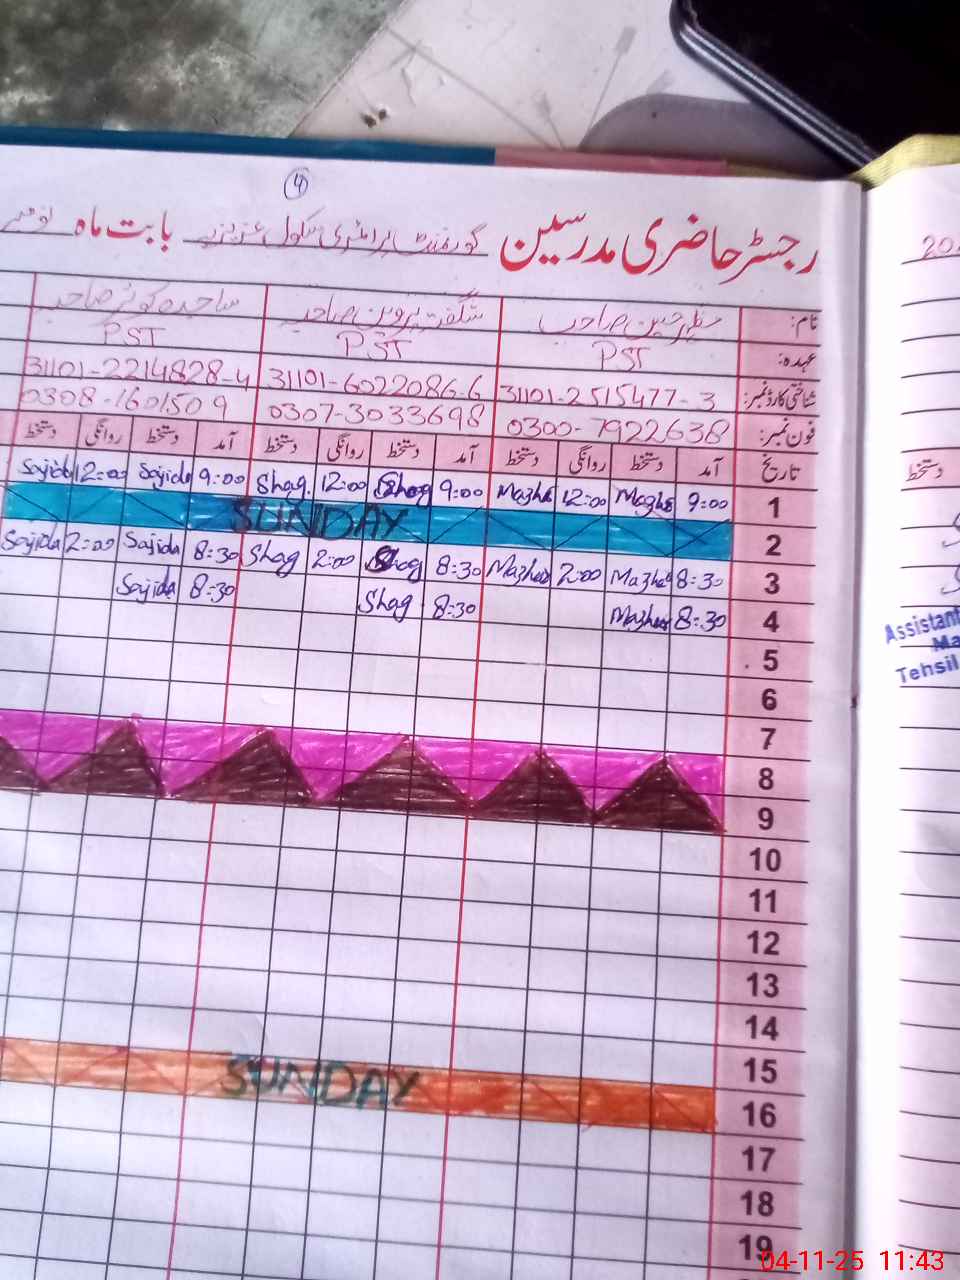 4
رجسٹر حاضری مدرسین گورنمنٹ پرائمری سکول عزیزیہ بابت ماہ نومبر
نام: مظہر حسین صاحب شگفتہ پروین صاحبہ ساجدہ کوثر صاحبہ
عہدہ: PST PST PST
شناختی کارڈ نمبر: 31101-2515477-3 31101-6022086-6 31101-2214828-4
فون نمبر: 0300-7922638 0307-3033698 0308-1601509
تاریخ آمد دستخط روانگی دستخط آمد دستخط روانگی دستخط آمد دستخط روانگی دستخط
1 9:00 Mazhe 12:00 Mazhe 9:00 Shag 12:00 Shag. 9:00 Sajida 12:00 Sajida
2 SUNDAY
3 8:30 Mazhe 2:00 Mazher 8:30 Shag 2:00 Shag 8:30 Sajida 2:00 Sajida
4 8:30 Mazher 8:30 Shag 8:30 Sajida
5
6
7
8
9
10
11
12
13
14
15
16 SUNDAY
17
18
19
دستخط
Assistant
Ma
Tehsil
04-11-25 11:43